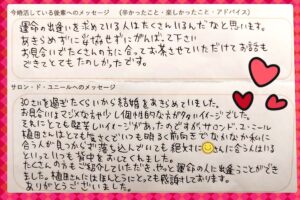 今婚活している後輩へのメッセージ (辛かったこと・楽しかったこと・アドバイス)
運命の出逢いを求めている人はたくさんいるんだなと思います。
あきらめずに焦せらずにがんばって下さい
お見合いでたくさんの方に会ってお茶させていただけてお話も
できてとてもたのしかったです。
サロン・ド・ユニールへのメッセージ
30さいを過ぎたくらいから結婚をあきらめていました。
お見合いはマジメな方や少し個性的な方が イメージでした。
それにとても堅苦しいイメージがあったのですがサロンド・ユニール
植田さんはとても気さくでいつも明るく前向きでなかなか私に
合う人が見つからず落ち込んでいても絶対に さんに合う人はいる
といっていつも背中をおしてくれました。
たくさんの方もご紹介していただき、やっと運命の人に出逢うことができ
ました。植田さんにはほんとうにとっても感謝しております。
ありがとうございました。